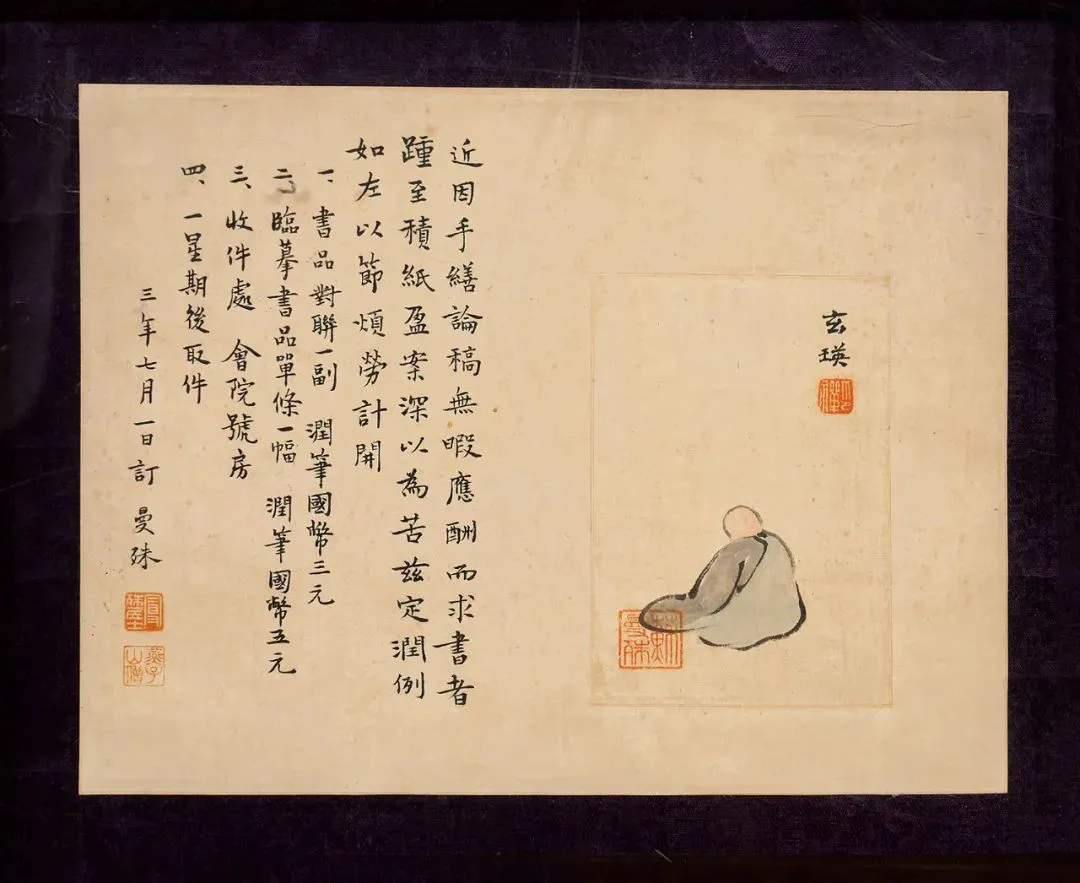 玄瑛
近因手繕論稿無暇應酬而求書者
踵至積紙盈案深以為苦茲定潤例
如左以節煩勞計開
一、書品對聯一副　潤筆國幣三元
二、臨摹書品單條一幅　潤筆國幣五元
三、收件處　會院號房
四、一星期後取件
三年七月一日訂　曼殊
蘇曼殊